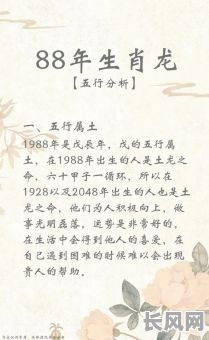 88年生肖龙
【五行分析】
一、五行属土
1988年是戊辰年，戊的五行属
土，在1988年出生的人是土龙之
命，六十甲子一循环，所以在
1928以及2048年出生的人也是土
龙之命，他们为人积极向上，做
事光明磊落，运势是非常好的，
在生活中会得到他人的喜爱，在
自己遇到困难的时候难以会出现
贵人的帮助。
长风网